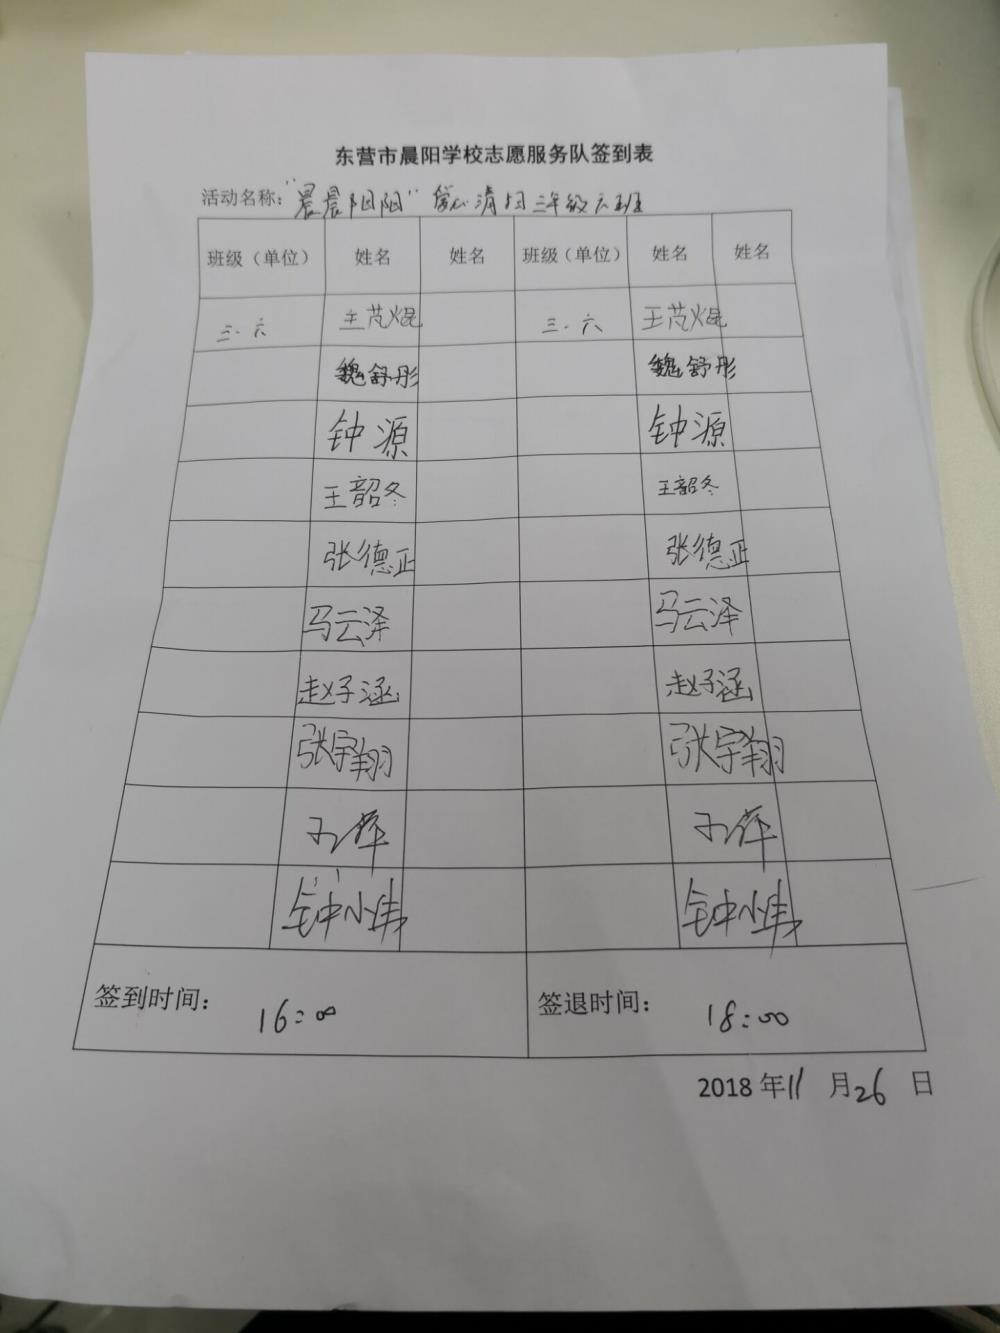 东营市晨阳学校志愿服务队签到表
活动名称："晨晨阳阳"爱心清扫三年级六班
班级（单位） 姓名 姓名 班级（单位） 姓名 姓名
三.六 王芃焜 三.六 王芃焜
魏舒彤 魏舒彤
钟源 钟源
王韶冬 王韶冬
张德正 张德正
马云泽 马云泽
赵子涵 赵子涵
张宇翔 张宇翔
萍 萍
钟小炜 钟小炜
签到时间： 16:00 签退时间： 18:00
2018年11月26日